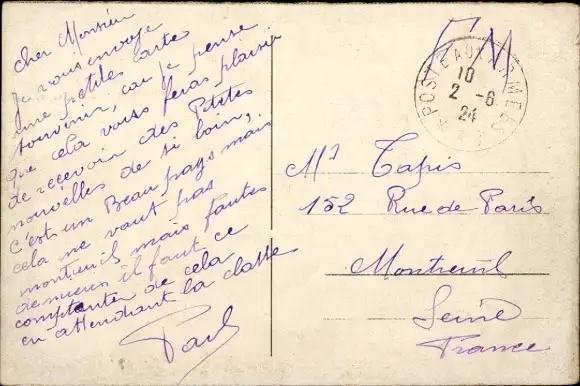 Cher Monsieur
Je vous envoye
une petites carte
souvenir, car je pense
que cela vous feras plaisir
de recevoir des Petites
nouvelles de si loin,
C'est un Beau pays mais
cela ne vaut pas
montreuil mais fautes
de mieux il faut ce
comptenter de cela
en attendant la classe
Paul
FM
POSTE AUX ARMEES
10
2 - 6
24
Mr Tapis
152 Rue de Paris
Montreuil
Seine
France